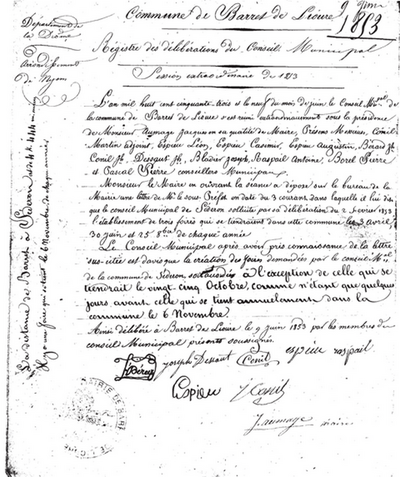 Commune de Barret de Lioure
9 Juin 1853
Département
de la Drôme
Arrondissement
de Nyons
Régistre des délibérations du Conseil Municipal
Session extraordinaire de 1853
L'an mil huit cent cinquante trois et le neuf du mois de juin le Conseil Mpal de
la commune de Barret de Lioure s'est réuni extraordinairement sous la présidence
de Monsieur Aumage Jacques en sa qualité de Maire, Présens Messieurs, Conil
Martin adjoint, Espieu Léon, Espieu Casimir, Espieu Augustin, Béraud Js
Conil Jh Dessaut Jh, Bladier Joseph, Raspail Antoine, Borel Pierre
et Pascal Pierre conseillers Municipaux
Monsieur le Maire en ouvrant la séance a déposé sur le bureau de la
Mairie une lettre de Mr le sous-Préfet en date du 3 courant dans laquelle il lui dit
que le conseil Municipal de Séderon sollicite par sa délibération du 2 février 1853
l'établissement de trois foires qui se tiendraient dans cette commune les 3 avril,
30 juin et 25 8bre de chaque année
Le Conseil Municipal après avoir pris connaissance de la lettre
sus-citée est d'avis que la création des foires demandées par le conseil Mpal
de la commune de Séderon, à l'exception de celle qui se
tiendrait le vingt-cinq Octobre, comme n'étant que quelques
jours avant celle qui se tient annuellement dans la
commune le 6 Novembre.
Ainsi délibéré à Barret de Lioure le 9 juin 1853 par les membres du
conseil Municipal présents soussignés
La distance de Barret à Séderon est de
Il y a une foire qui se tient le 6 Novembre de chaque année
Joseph Dessaut
Conil
espieu
raspail
Espieu
J Conil
J. aumage
maire